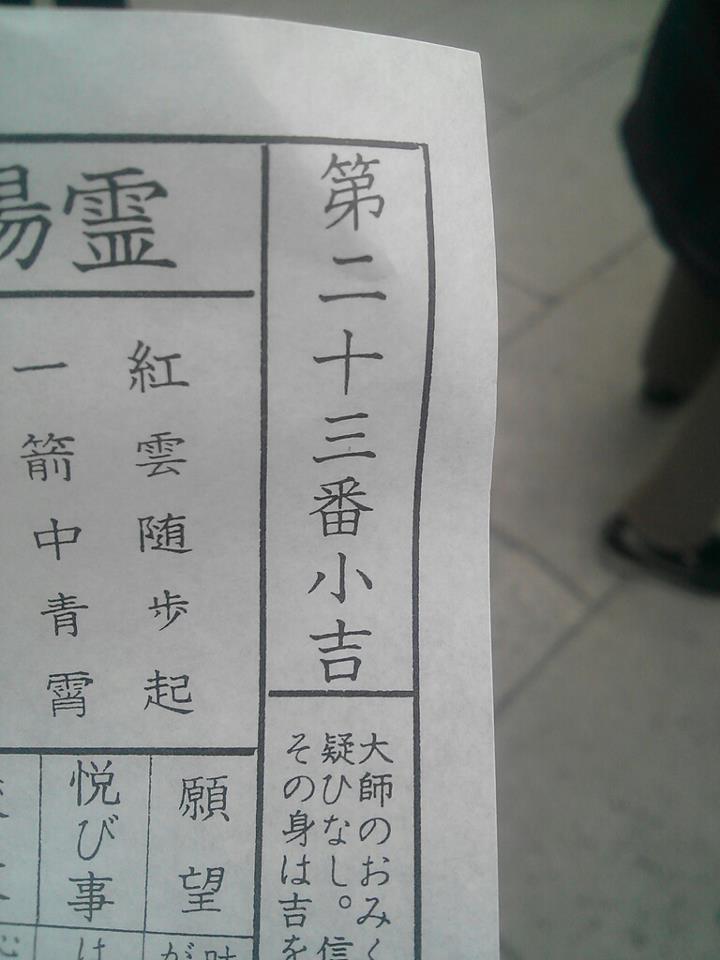 第二十三番小吉
大師のおみく
疑ひなし。信
その身は吉を
霊
紅雲随歩起
一箭中青霄
願望
悦び事